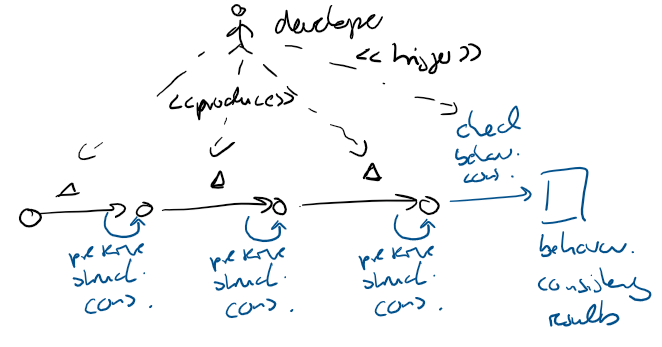 develope
<<trigger>>
<<produces>>
check
behav.
cons.
Δ
Δ
Δ
preserve
struct.
cons.
preserve
struct.
cons.
preserve
struct.
cons.
behavior.
consistency
results